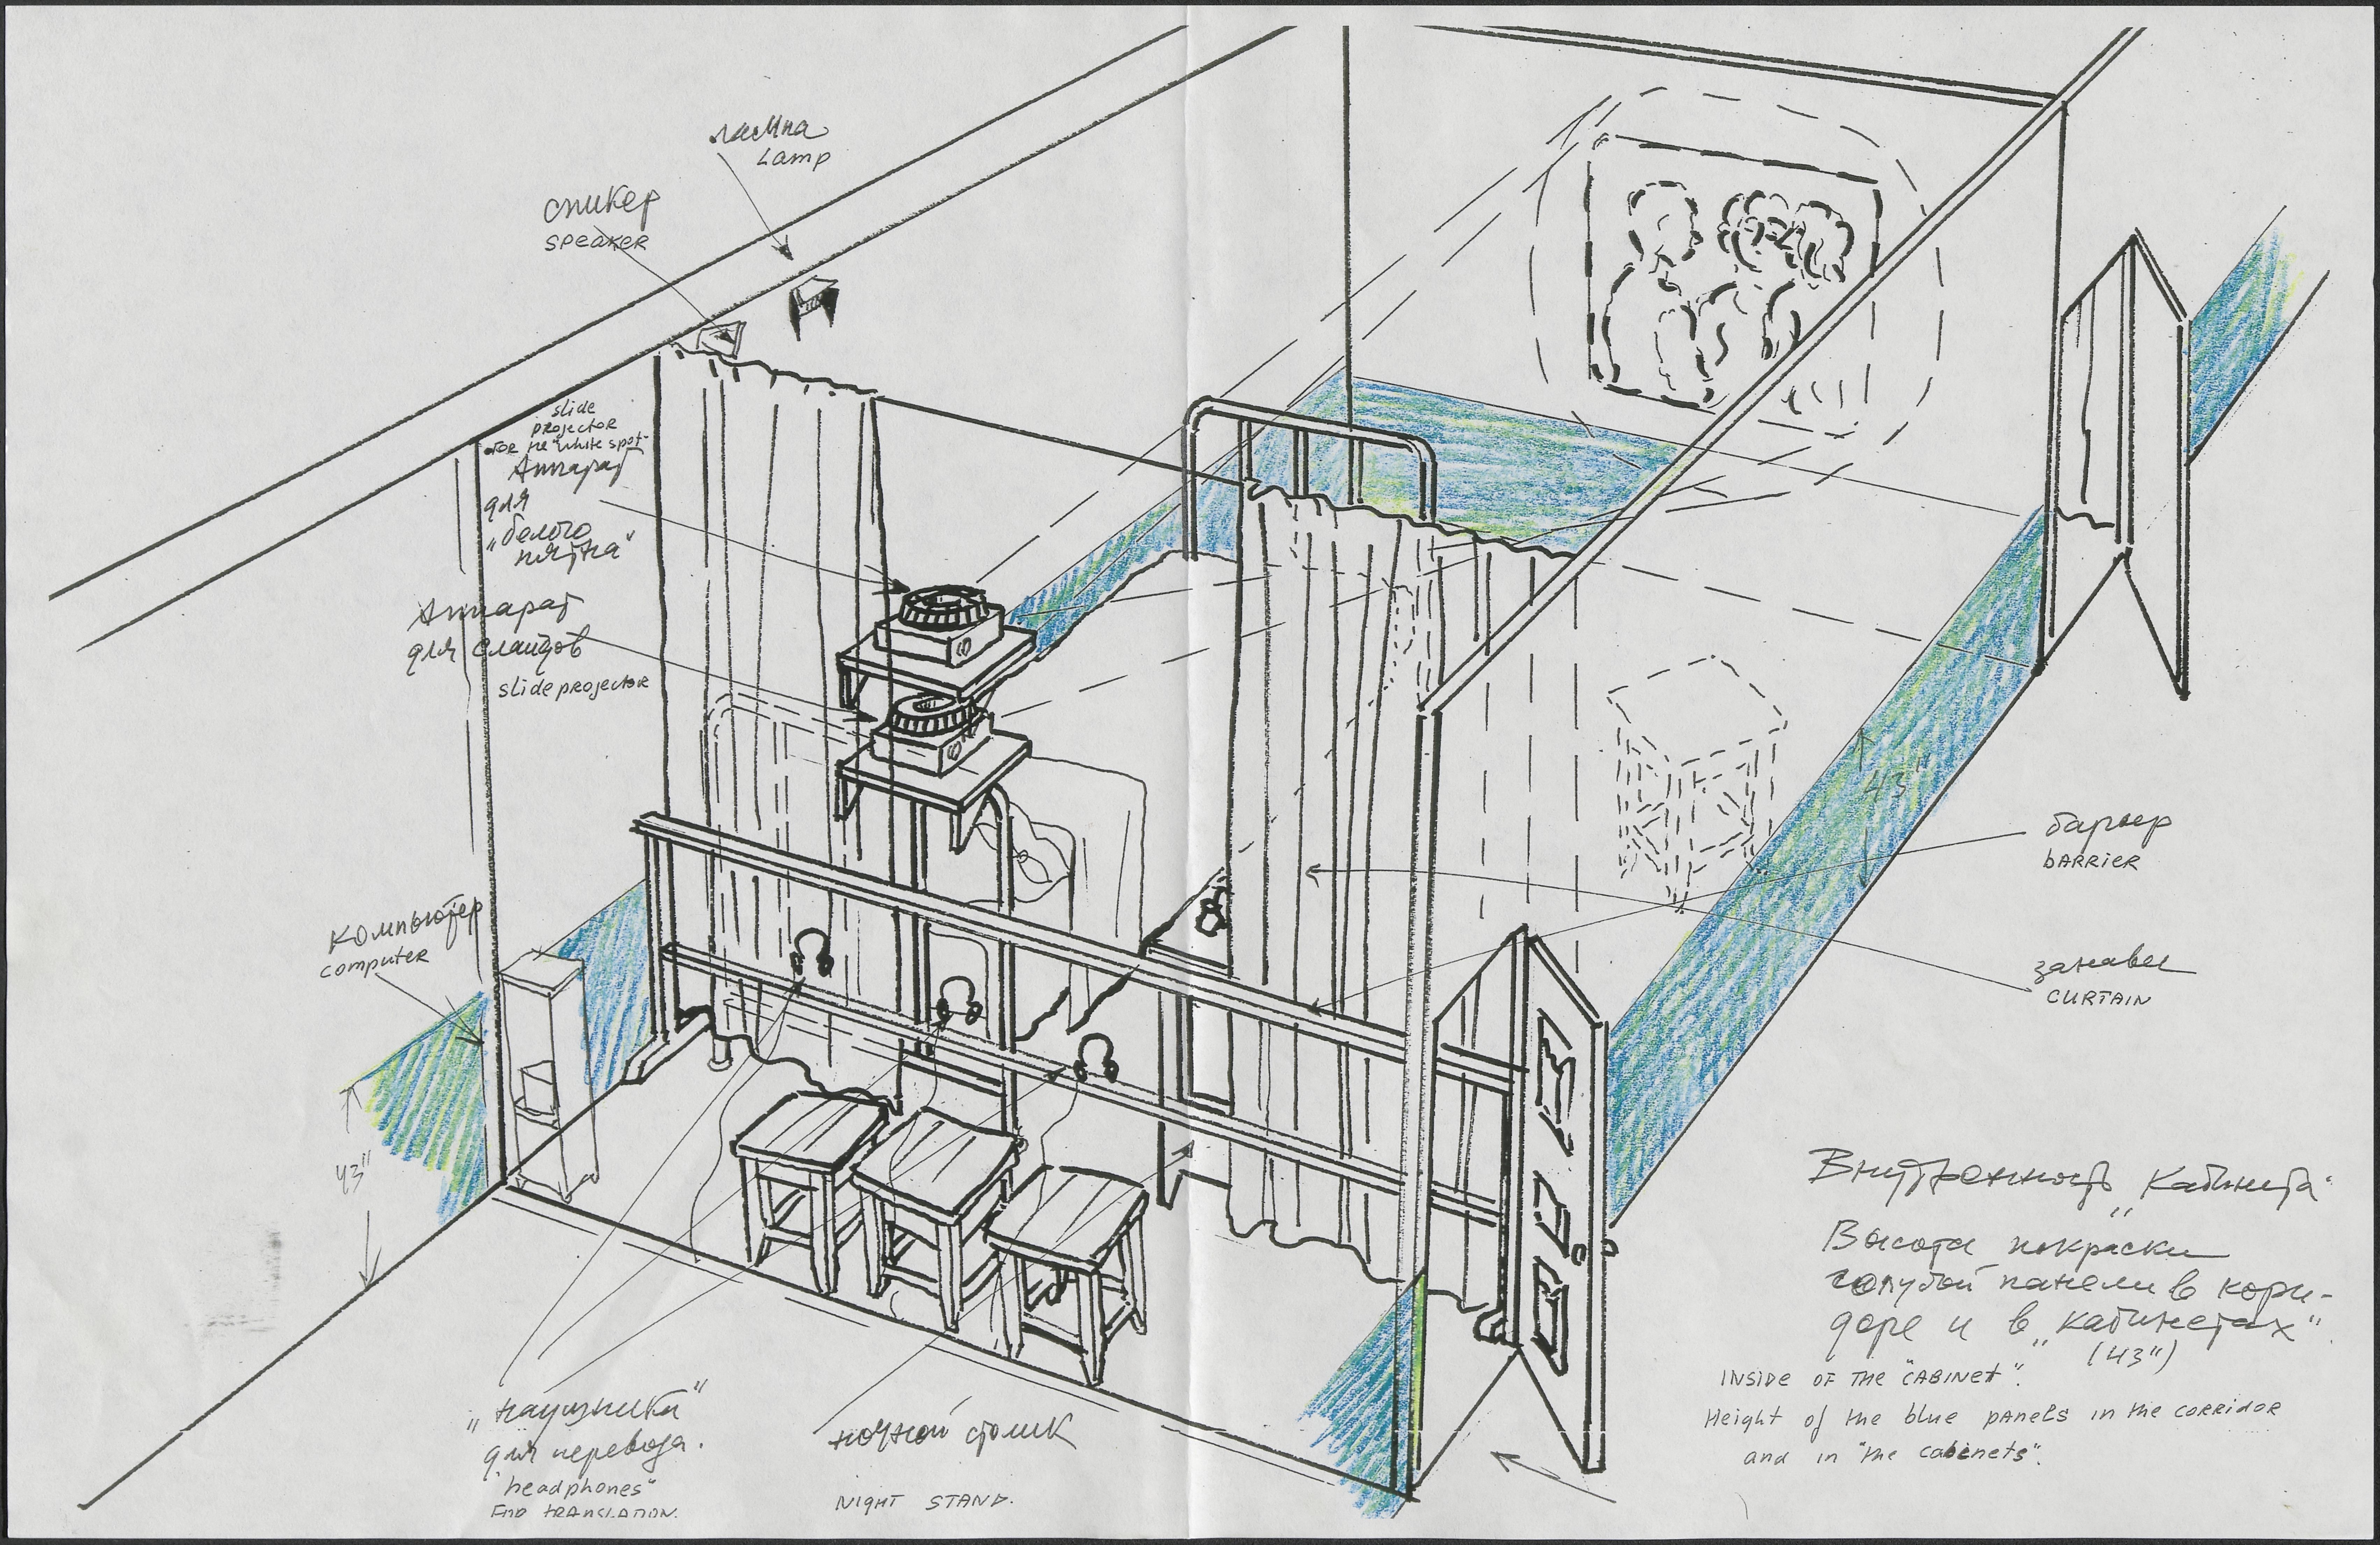 лампа
Lamp
спикер
speaker
slide
projector
for the "white spot"
Аппарат
для
„белого
пятна"
Аппарат
для слайдов
slide projector
компьютер
computer
43"
43"
барьер
BARRIER
занавес
CURTAIN
Внутренность „кабинета"
Высота покраски
голубой панели в кори-
доре и в „кабинетах"
(43")
INSIDE OF THE "CABINET".
Height of the blue panels in the corridor
and in "the cabinets".
„наушники"
для перевода.
"headphones"
FOR TRANSLATION.
ночной столик
NIGHT STAND.